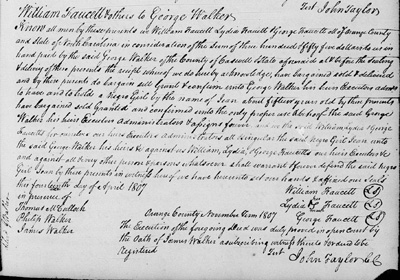 Test John Taylor
William Faucett & others to George Walker
Know all men by these presents we William Faucett Lydia Faucett George Faucett all of Orange County
and State of North Carolina in consideration of the Sum of three hundred & fifty five dollars to us in
hand paid by the said George Walker of the County of Caswell State aforesaid at & before the sealing
& delivery of these presents the receipt whereof we do hereby acknowledge, have bargained sold & delivered
and by these presents do bargain sell Grant & confirm unto George Walker his heirs Executors admrs
to have and to hold a Negro Girl by the name of Joan about fifteen years old by these presents
have bargained sold Granted and confirmed unto the only proper use & behoof of the said George
Walker his heirs Executors Administrators & assigns forever and we the said William Lydia & George
Faucetts for ourselves our heirs Executors Administrators all singular the said negro Girl Joan unto
the said George Walker his heirs & against us William, Lydia, & George Faucetts our heirs
and against all & every other person & persons whatsoever shall warrant & forever defend the said negro
Girl Joan by these presents in witness whereof we have hereunto set our hands & affixed our Seals
this fourteenth day of April 1807
in presence of
Thomas McCulloch
Philip Walker
James Walker
William Faucett
Lydia Faucett
George Faucett
Orange County November Term 1807
The Execution of the foregoing Deed was duly proved in open Court by
the Oath of James Walker a subscribing witness thereto & ordered to be
Registered
Test
John Taylor CC